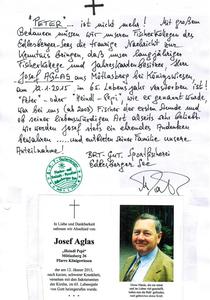 "PETER" ... ist nicht mehr! Mit großem
Bedauern müssen wir unseren Fischerkollegen des
Edlesberger-Sees die traurige Nachricht zur
Kenntnis bringen, daß unser langjähriger
Fischerkollege und Jahreskartenbesitzer Herr
Josef AGLAS aus Mötlasberg bei Königswiesen,
am 12.1.2015 im 65. Lebensjahr verstorben ist!
"Peter" - oder "Heindl-Pepi", wie er genannt wurde,
war bei uns Fischer der ersten Stunde und ob
seiner liebenswürdigen Art allseits sehr beliebt.
Wir werden Josef stets ein ehrendes Andenken
bewahren ..... und entbieten seiner Familie unsere
Anteilnahme!
BRT-GUT, Sportfischerei
Edlesberger See
In Liebe und Dankbarkeit
nehmen wir Abschied von
Josef Aglas
„Heindl Pepi"
Mötlasberg 26
Pfarre Königswiesen
der am 12. Jänner 2015,
nach kurzer, schwerer Krankheit,
versehen mit den Sakramenten
der Kirche, im 65. Lebensjahr
von Gott heimgerufen wurde.